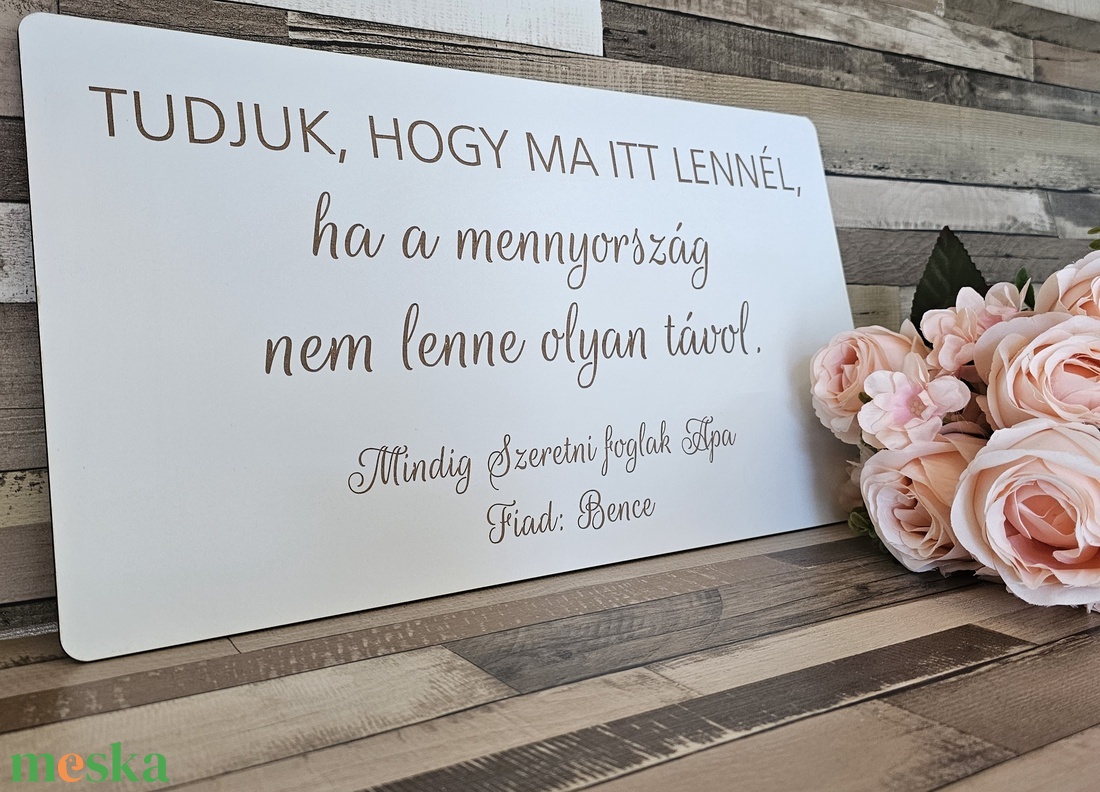 TUDJUK, HOGY MA ITT LENNÉL,
ha a mennyország
nem lenne olyan távol.
Mindig Szeretni foglak Apa
Fiad: Bence
meska